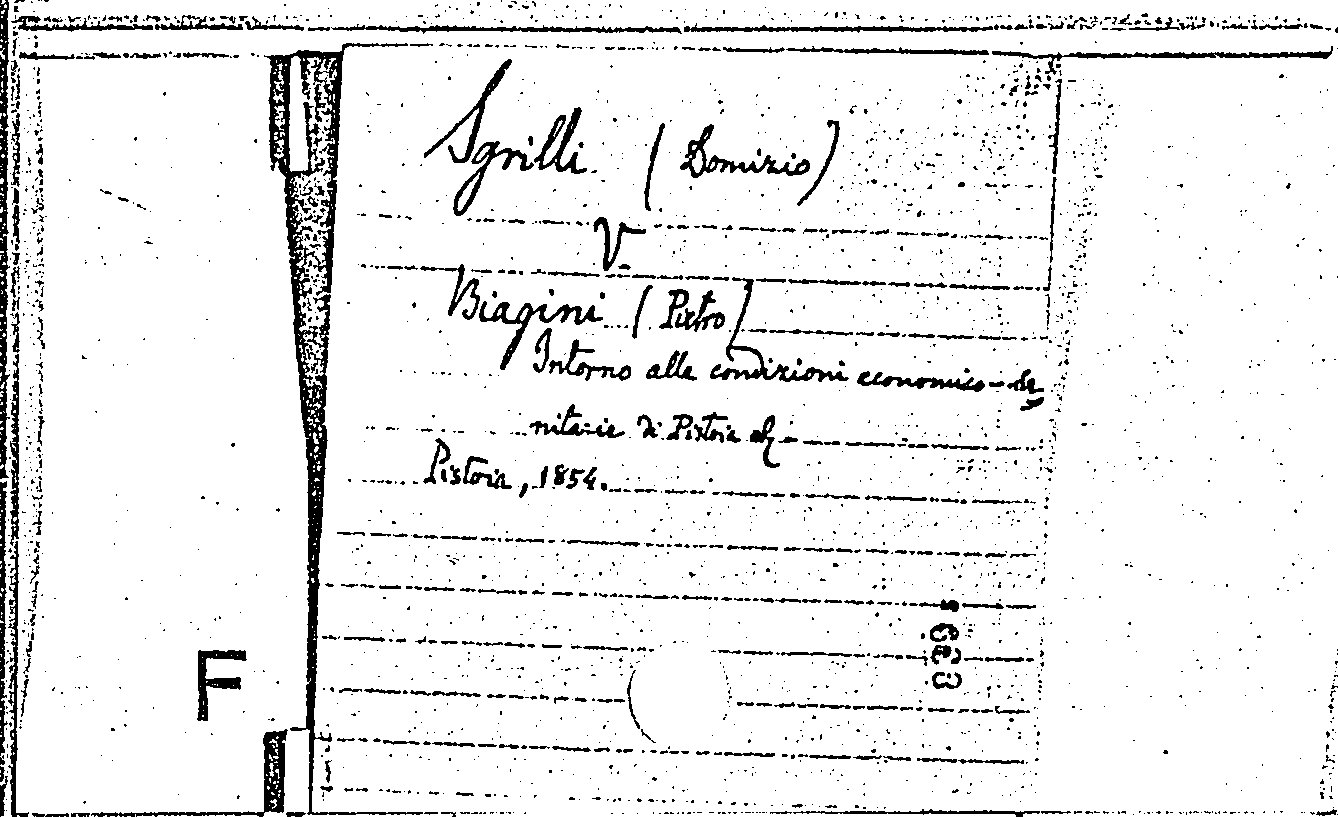 Sgrilli (Domizio)
V.
Biagini (Pietro)
Intorno alle condizioni economico-sa
nitarie di Pistoia
Pistoia, 1854.
F